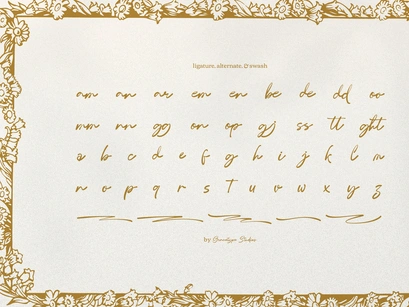 ligature, alternate, & swash
am an ar em en be de dd oo
mm nn gg on op gj ss tt ght
a b c d e f g h i j k l m
n o p q r s t u v w x y z
by Grantype Studios